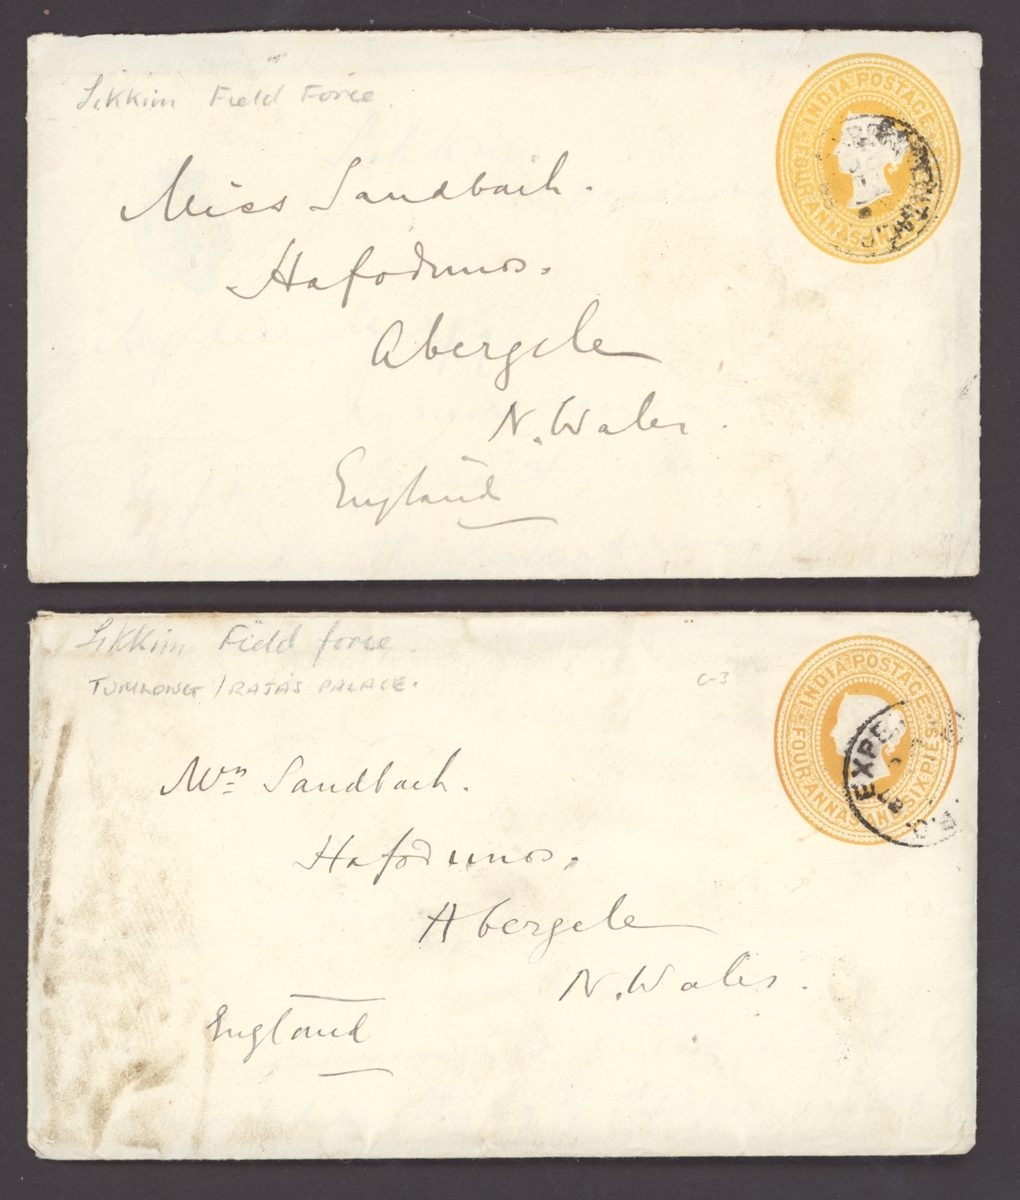 Sikkim Field Force
INDIA POSTAGE
FOUR ANNAS
Miss Sandbach.
Hafodunos.
Abergele
N. Wales.
England
Sikkim Field force
TUMLONG / RAJA'S PALACE.
C-3
INDIA POSTAGE
FOUR ANNAS AND SIX PIES
EXPE
Mrs Sandbach.
Hafodunos.
Abergele
N. Wales.
England